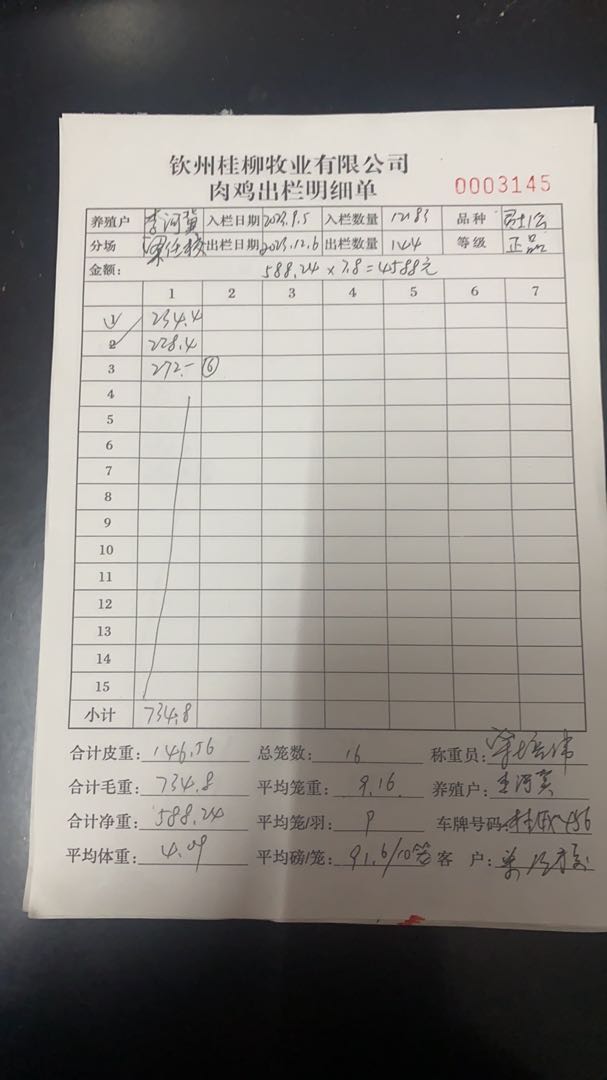 钦州桂柳牧业有限公司
肉鸡出栏明细单
0003145
养殖户 李河冀 入栏日期 2023.9.5 入栏数量 1283 品种
分场 出栏日期 2023.12.6 出栏数量 144 等级 正品
金额: 588.24 × 7.8 = 4588元
1 2 3 4 5 6 7
1 234.4
2 228.4
3 272.- ⑥
4
5
6
7
8
9
10
11
12
13
14
15
小计 734.8
合计皮重: 146.56 总笼数: 16 称重员:
合计毛重: 734.8 平均笼重: 9.16 养殖户:
合计净重: 588.24 平均笼/羽: 9 车牌号码:
平均体重: 4.09 平均磅/笼: 91.6/10笼 客 户: